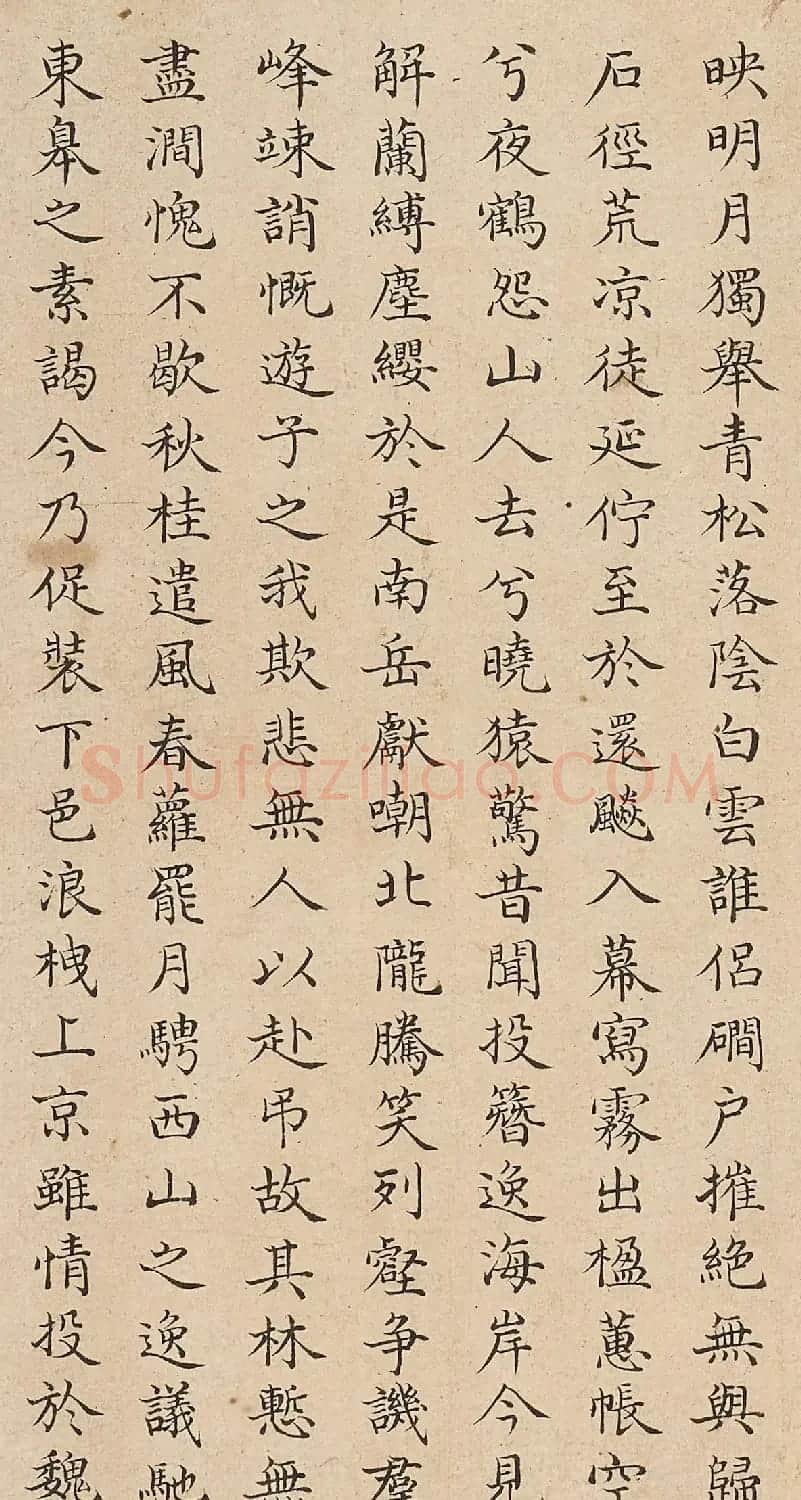 映明月獨舉青松落陰白雲誰侶磵户摧絶無與歸
石徑荒凉徒延佇至於還飈入幕寫霧出楹蕙帳空
兮夜鶴怨山人去兮曉猿驚昔聞投簪逸海岸今見
解蘭縛塵纓於是南岳獻嘲北隴騰笑列壑争譏羣
峰竦誚慨遊子之我欺悲無人以赴吊故其林慙無
盡澗愧不歇秋桂遣風春蘿罷月騁西山之逸議馳
東皋之素謁今乃促裝下邑浪栧上京雖情投於魏
Shufaziliao.COM